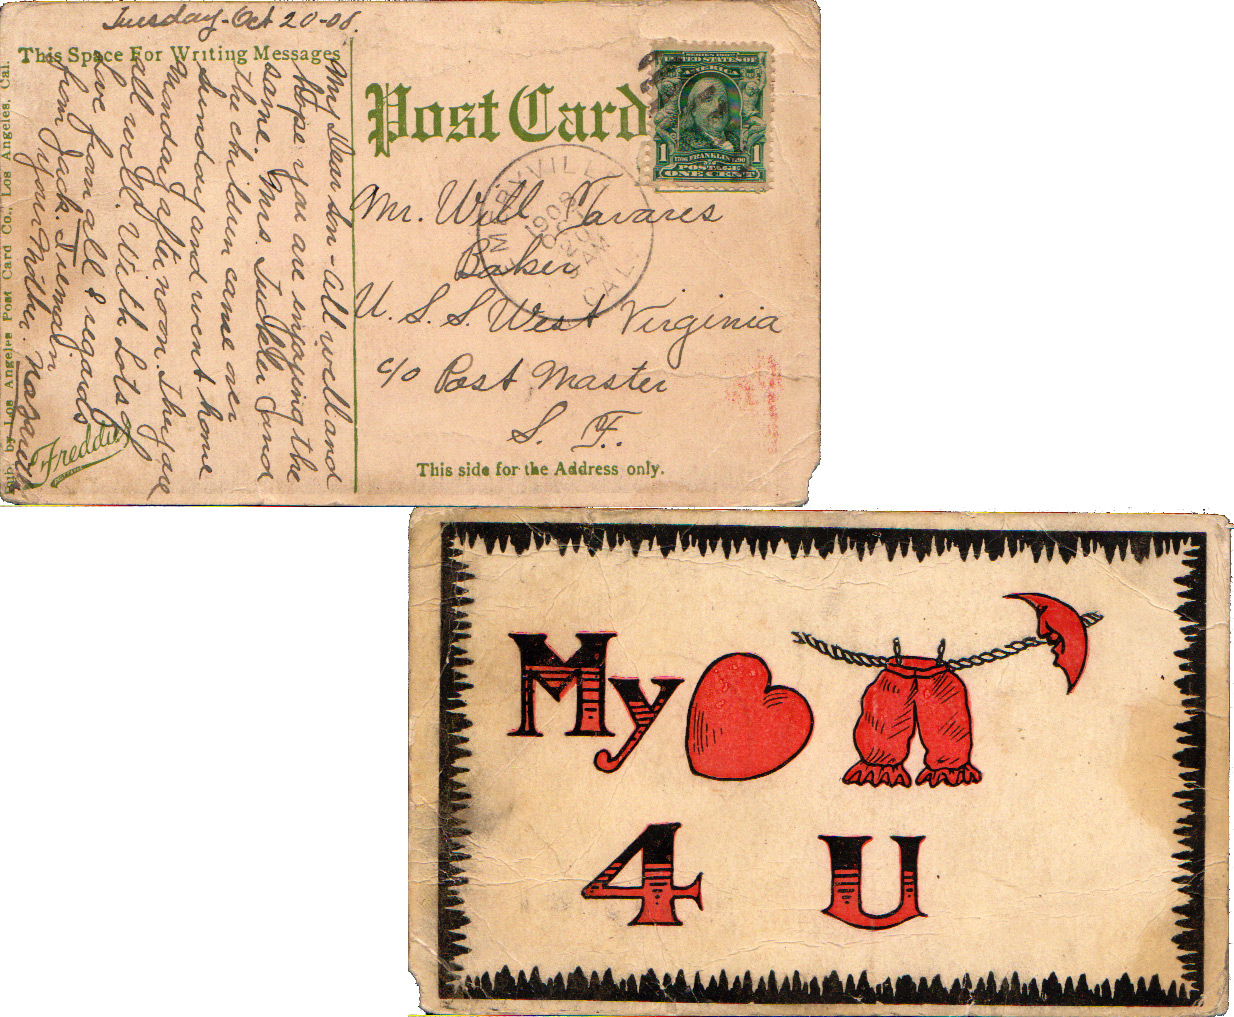 Tuesday-Oct 20-08.
This Space For Writing Messages
My Dear Son - All well and
hope you are enjoying the
same. Mrs. Tuckler and
the children came over
Sunday and went home
Monday afternoon. They are
all well. With Lots of
Love from all & regards
from Jack. I remain
Your Mother.
Pub. by Los Angeles Post Card Co., Los Angeles, Cal.
Freddie
Post Card
UNITED STATES OF
AMERICA
1 FRANKLIN 1
POSTAGE
ONE CENT
MARYVILLE
1908
OCT
20
AM
CAL.
Mr. Will Tavares
Baker
U.S.S. West Virginia
c/o Post Master
S. F.
This side for the Address only.
My
4 U